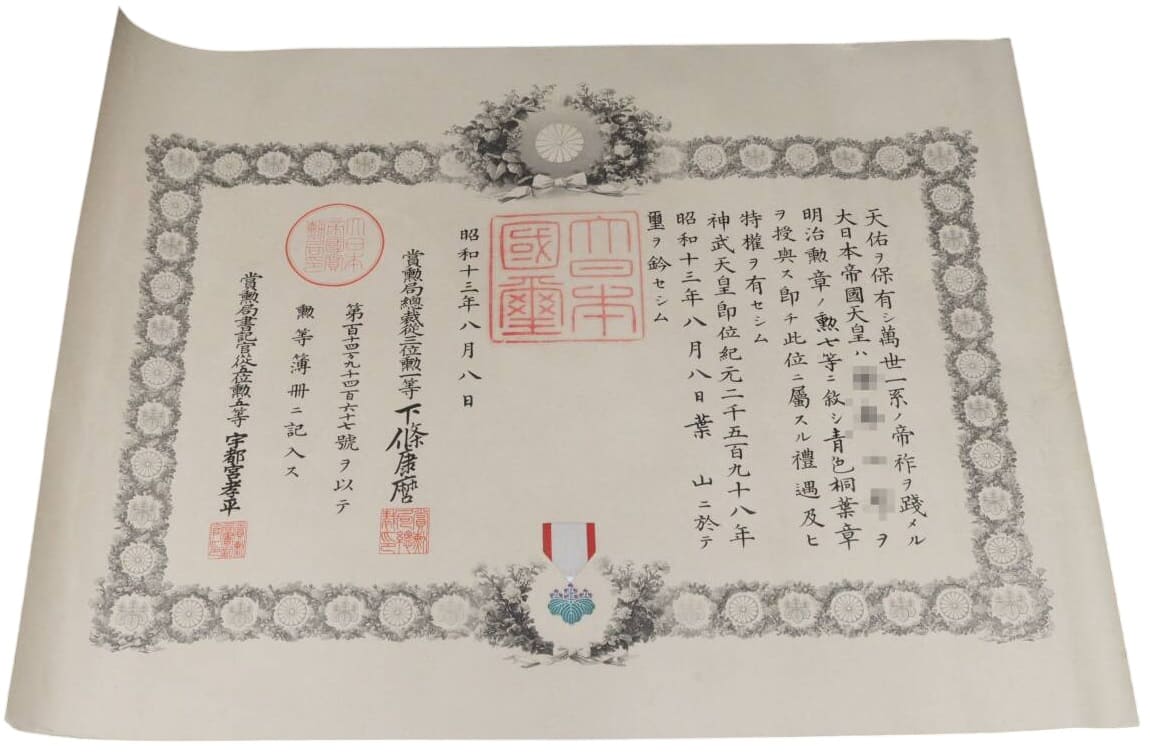 天佑ヲ保有シ萬世一系ノ帝祚ヲ踐メル
大日本帝國天皇ハ ヲ
明治勲章ノ勲七等ニ敘シ青色桐葉章
ヲ授與ス即チ此位ニ屬スル禮遇及ヒ
特權ヲ有セシム
神武天皇即位紀元二千五百九十八年
昭和十三年八月八日葉山ニ於テ
璽ヲ鈐セシム
大日本
國璽
昭和十三年八月八日
賞勲局總裁從三位勲一等下條康麿
第百十四万九千四百六十七號ヲ以テ
勲等簿冊ニ記入ス
賞勲局書記官從五位勲五等宇都宮孝平